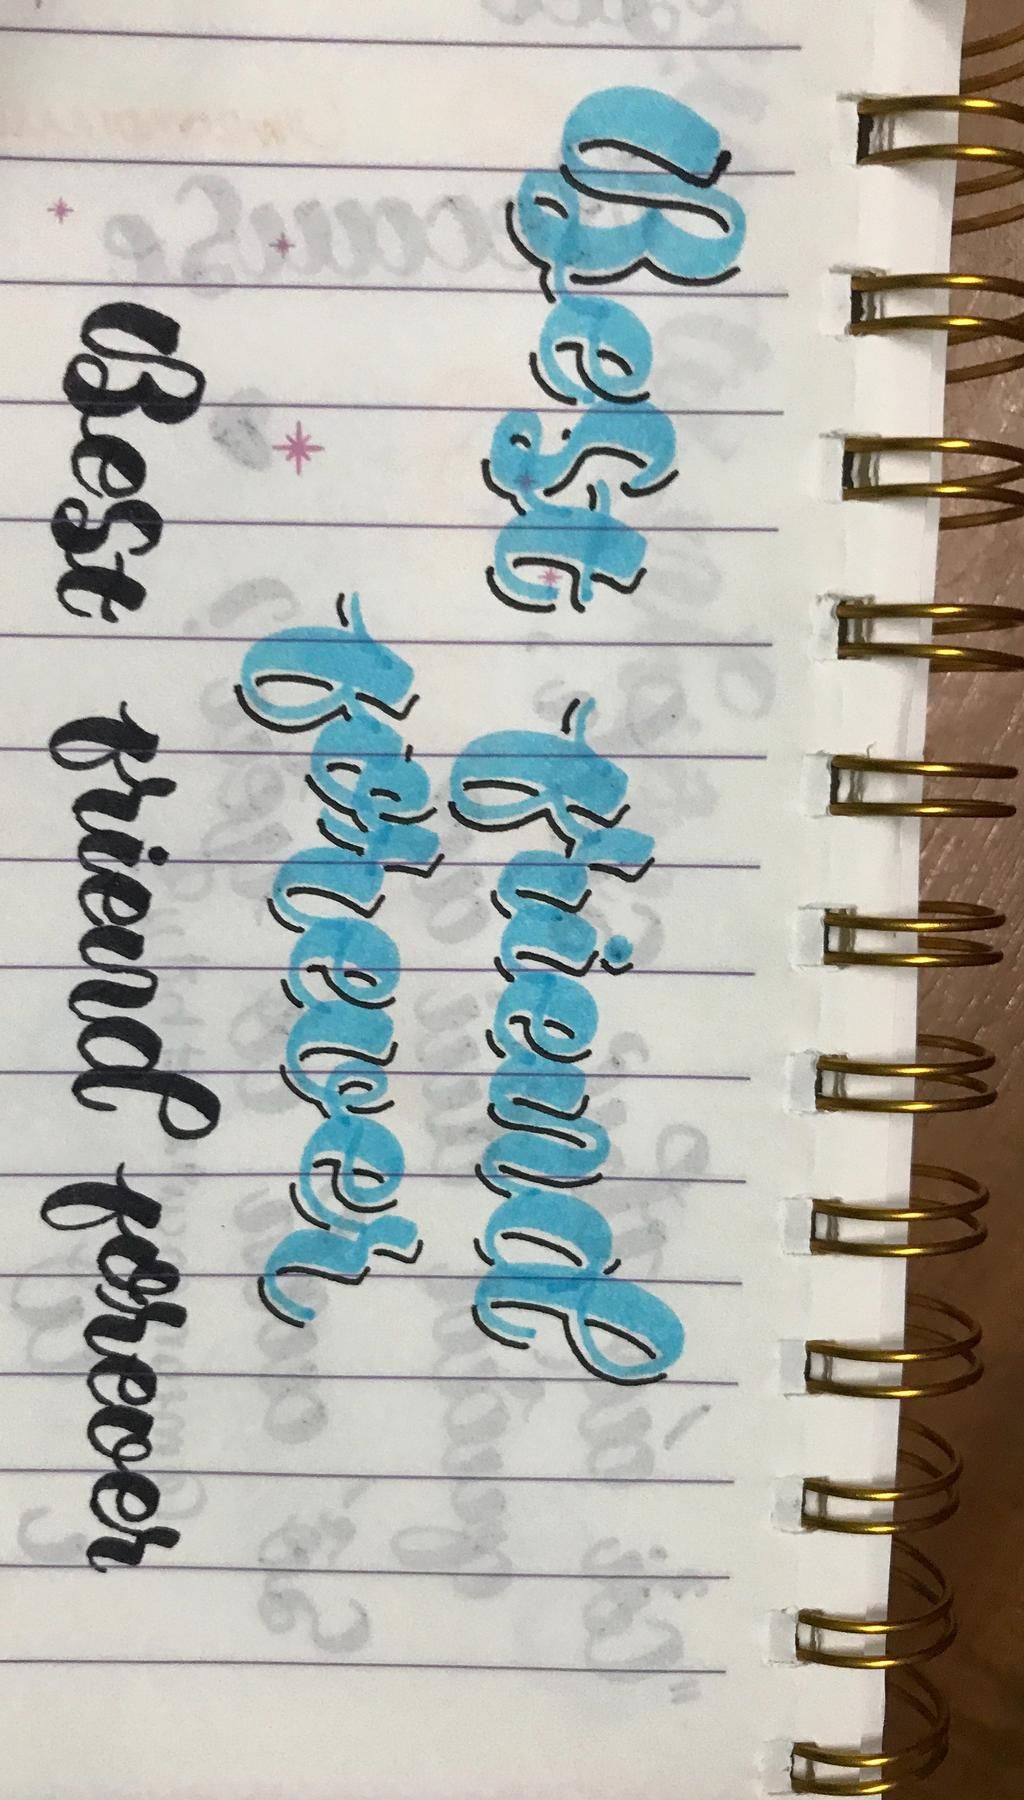 Best
friend
forever
Best friend forever